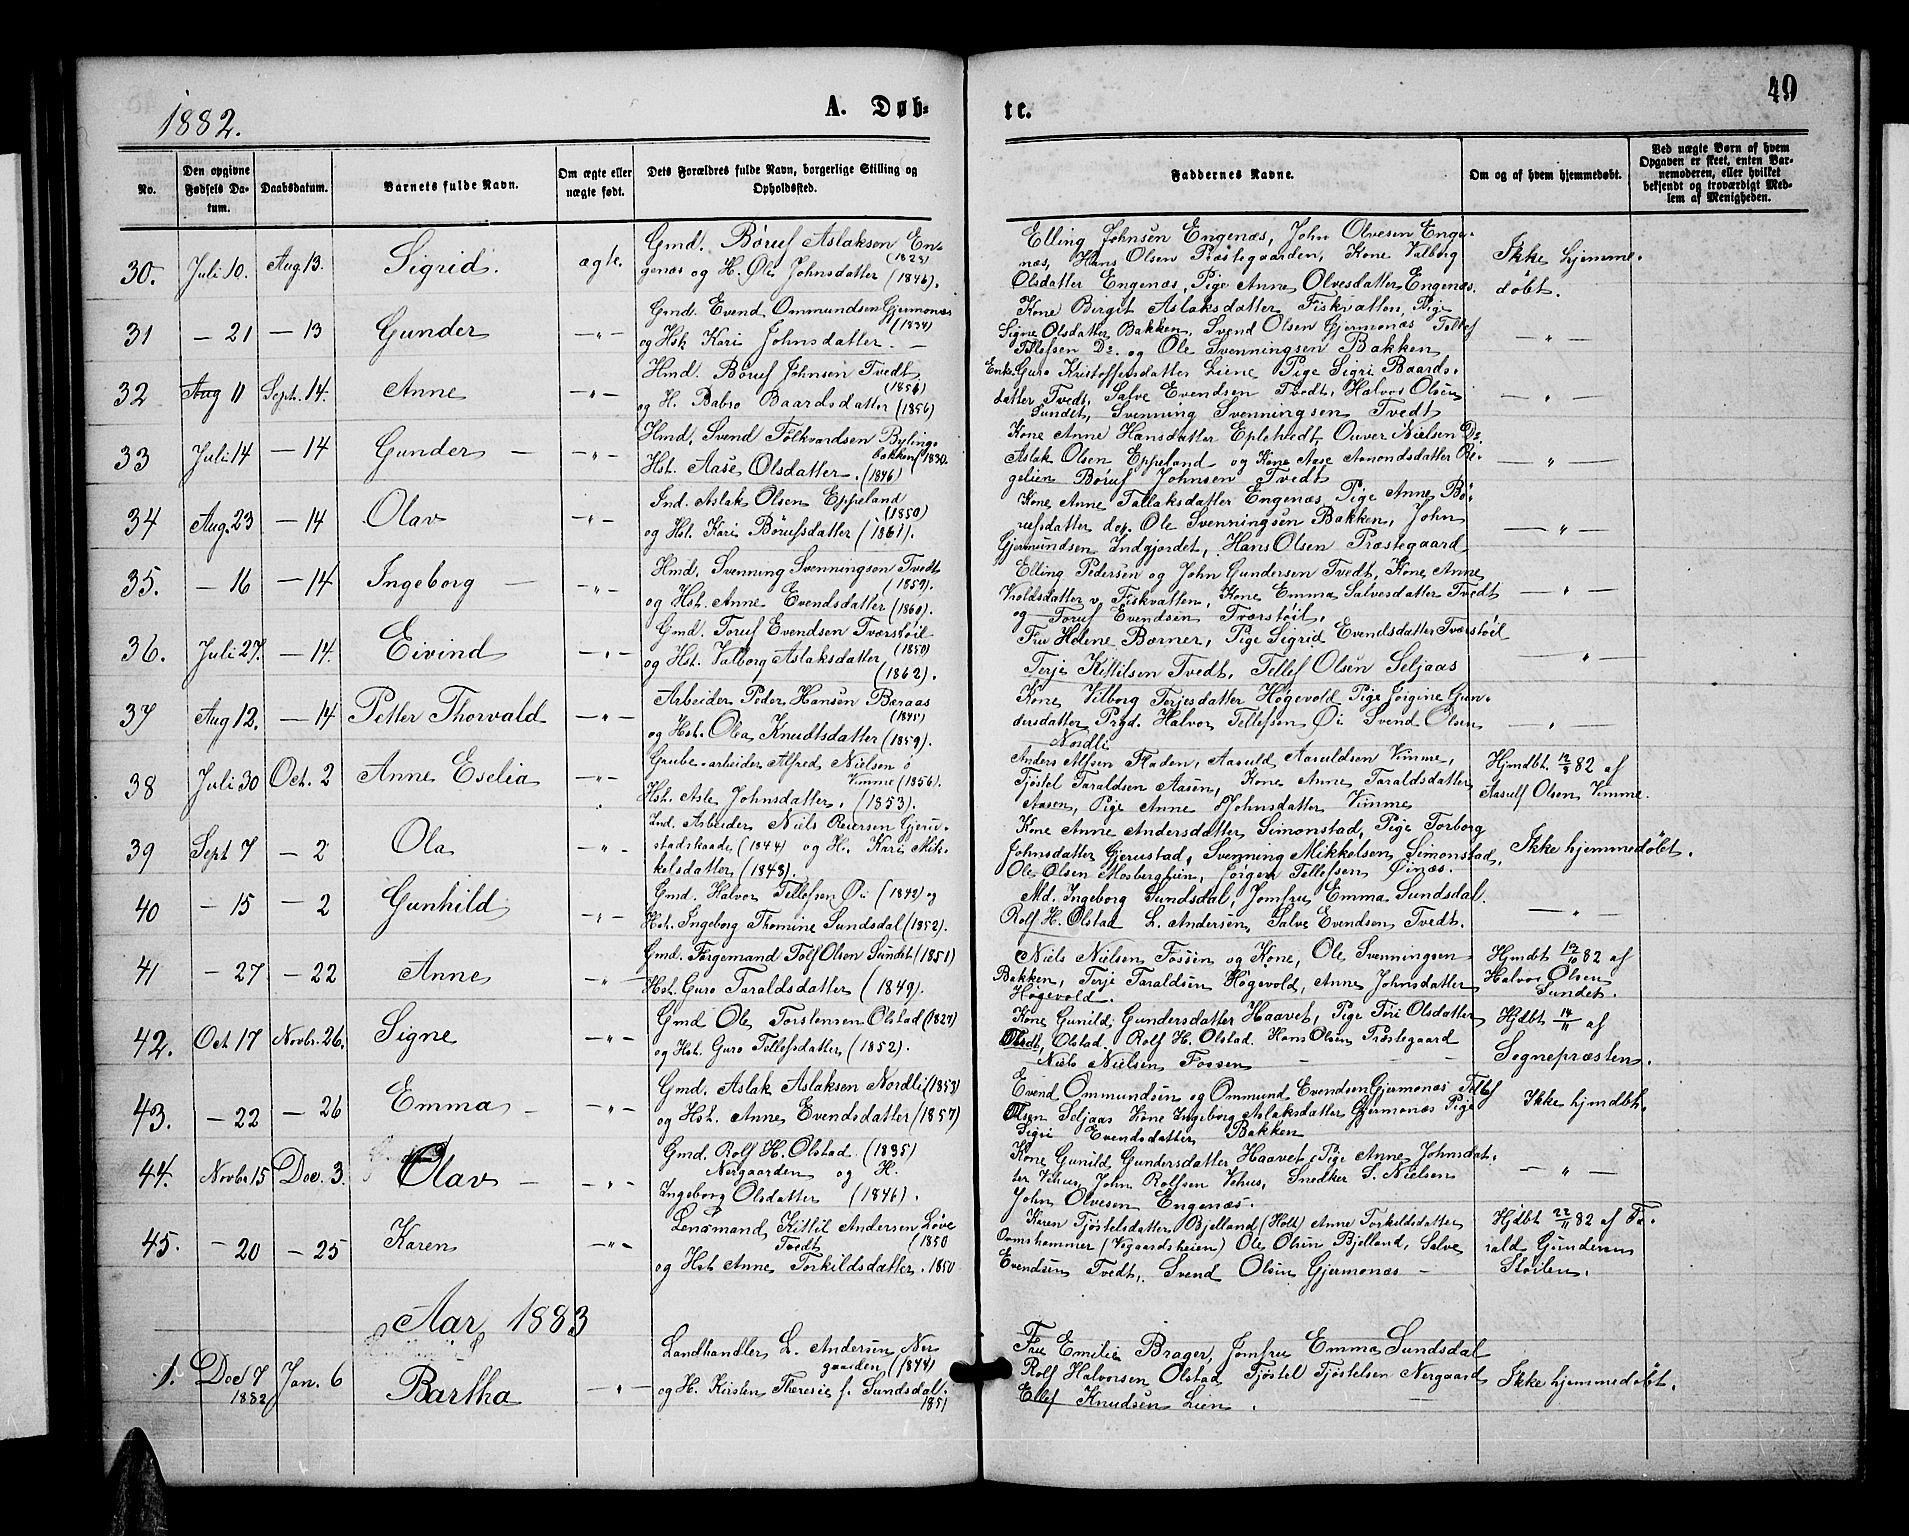 1882.
A. Døb-
te.
49
No.
Den opgivne Fødsels Da-
tum.
Daabsdatum.
Barnets fulde Navn.
Om ægte eller
uægte født.
Dets Forældres fulde Navn, borgerlige Stilling og
Opholdssted.
Faddernes Navne.
Om og af hvem hjemmedøbt.
Ved uægte Børn af hvem
Opgaven er skeet, enten Bar-
nemoderen, eller hvilket
bekjendt og troværdigt Med-
lem af Menigheden.
30. Juli 10. Aug 13. Sigrid. ægte.
Gmd. Børuf Aslaksen En-
genæs og H. Øli Johnsdatter (1846).
Elling Johnsen Engenæs, John Olvesen Enge-
næs, Hans Olsen Præstegaarden, Kone Valborg
Olsdatter Engenæs, Pige Anne Olvesdatter Engenæs.
Ikke hjemme-
døbt.
31 - 21 - 13 Gunder - " -
Gmd. Evend Ommundsen Gjermonæs
og Hst. Kari Johnsdatter. -
Kone Birgit Aslaksdatter Fiskvatten, Pige
Signe Olsdatter Bakken, Svend Olsen Gjermonæs Tellef
Tellefsen Do. og Ole Svenningsen Bakken
- " -
32 Aug 11 Sept. 14. Anne - " -
Hmd. Børuf Johnsen Tvedt
(1856)
og H. Babro Baardsdatter (1856)
Enke Guro Kristoffersdatter Liene Pige Sigri Baards-
datter Tvedt, Salve Evendsen Tvedt, Halvor Olsen
Sundet, Svenning Svenningsen Tvedt
- " -
33 Juli 14 - 14 Gunder - - " -
Hmd. Svend Folkvardsen Byling-
bakken (1830.
Hst. Aase Olsdatter. (1846)
Kone Anne Hansdatter Eplehtedt, Ouver Nielsen Do.
Aslak Olsen Eppeland og Kone Aase Aamondsdatter Re-
gelien Børuf Johnsen Tvedt
- " -
34 Aug. 23 - 14 Olav - " -
Ind. Aslak Olsen Eppeland
(1850)
og Hst. Kari Børufsdatter (1861).
Kone Anne Tallaksdatter Engenæs, Pige Anne Bø-
rufsdatter do. Ole Svenningsen Bakken, John
Gjermundsen Indgjordet, Hans Olsen Præstegaard
- " -
35. - 16 - 14 Ingeborg - - " -
Hmd. Svenning Svenningsen Tvedt
(1859)
og Hst. Anne Evendsdatter (1860).
Elling Pedersen og John Gundersen Tvedt, Kone Anne
Vroldsdatter v. Fiskvatten, Kone Emma Salvesdatter Tvedt
og Toruf Evendsen Tværstøil.
- " -
36. Juli 27. - 14. Eivind - " -
Gmd. Toruf Evendsen Tværstøil
(1850)
og Hst. Valborg Aslaksdatter
(1862).
Fru Helene Børner, Pige Sigrid Evendsdatter Tværstøil
Terje Kittilsen Tvedt, Tellef Olsen Seljaas
- " -
37 Aug 12. - 14 Petter Thorvald - " -
Arbeider Peder Hansen Beraas
(1845)
og Hst. Olea Knudtsdatter (1859).
Kone Vilborg Terjesdatter Høgevold Pige Jørgine Gun-
dersdatter Prgd. Halvor Tellefsen Øi Svend Olsen
Nordli
- " -
38 Juli 30 Oct. 2 Anne Eselia - " -
Grube-arbeider Alfred Nielsen
Vimme (1856).
Hst. Asle Johnsdatter. (1853).
Anders Alfsen Staden, Aasuld Aasuldsen Vimme,
Tjøstel Taraldsen Aasen, Kone Anne Taraldsdatter
Aasen, Pige Anne Johnsdatter Vimme
Hjmdbt 12/9 82 af
Aasulf Olsen Vimme.
39 Sept 7 - 2 Ola - " -
Ind. Arbeider Niels Reiersen Gjeru-
stadskaade (1844) og H. Kari Mik-
kelsdatter (1848).
Kone Anne Andersdatter Simonstad, Pige Torborg
Johnsdatter Gjerustad, Svenning Mikkelsen Simonstad,
Ole Olsen Mosberghein, Jørgen Tellefsen Øinæs.
Ikke hjemmedøbt.
40 - 15 - 2 Gunhild - " -
Gmd. Halvor Tellefsen Øi (1842) og
Hst. Ingeborg Thomine Sundsdal (1852).
Md. Ingeborg Sundsdal, Jomfru Emma Sundsdal.
Rolf H. Olstad L. Andersen, Salve Evendsen Tvedt.
- " -
41 - 27 - 22 Anne - " -
Gmd. Færgemand Tolf Olsen Sundet (1851)
Hst. Guro Taraldsdatter (1849).
Niels Nielsen Fossen og Kone, Ole Svenningsen
Bakken, Terje Taraldsen Høgevold, Anne Johnsdatter
Høgevold.
Hjmdbt 12/10 82 af
Halvor Olsen
Sundet.
42. Oct 17 Novbr. 26. Signe - " -
Gmd Ole Torstensen Olstad (1827)
og Hst. Guro Tellefsdatter (1852).
Kone Gunild Gundersdatter Haavet, Pige Tori Olsdatter
Olstad. Rolf H. Olstad. Hans Olsen Præstegaard
Niels Nielsen Fossen - -
Hjdbt 14/11 af
Sognepræsten.
43. - 22 - 26 Emma - - " -
Gmd. Aslak Aslaksen Nordli (1853)
og Hst. Anne Evendsdatter (1857)
Evend Ommundsen og Ommund Evendsen Gjermonæs Tellef
Olsen Seljaas Kone Ingeborg Aslaksdatter Gjermonæs Pige
Sigri Evendsdatter Bakken
Ikke hjmdbt.
44. Novbr 15 Dec. 3. Olav - - " -
Gmd. Rolf H. Olstad. (1835)
Nergaarden og H.
Ingeborg Olsdatter (1846).
Kone Gunild Gundersdatter Haavet, Pige Anne Johnsdat-
ter Vehus, John Rolfsen Vehus, Snedker S. Nielsen
John Olvesen Engenæs.
- " -
45. - 20 - 25 Karen - " -
Lensmand Kittil Andersen Løve
Tvedt (1850
og Hst Anne Torkildsdatter. 1850
Karen Tjøstelsdatter Bjelland (Holt) Anne Torkildsdatter
Ormshommer (Vegaardsheien) Ole Olsen Bjelland, Salve
Evendsen Tvedt, Svend Olsen Gjermonæs -
Hjdbt 22/11 82 af Ta-
rald Gundersen
Støilen.
Aar 1883
1. Dec 7
1882 Jan. 6 Bartha - " -
Landhandler L. Andersen Ner-
gaarden (1844)
og H. Kirsten Theresie f. Sundsdal.
1851
Fru Emilie Brager, Jomfru Emma Sundsdal
Rolf Halvorsen Olstad Tjøstel Tjøstelsen Nergaard
Ellef Knudsen Lien. -
Ikke hjemmedøbt.